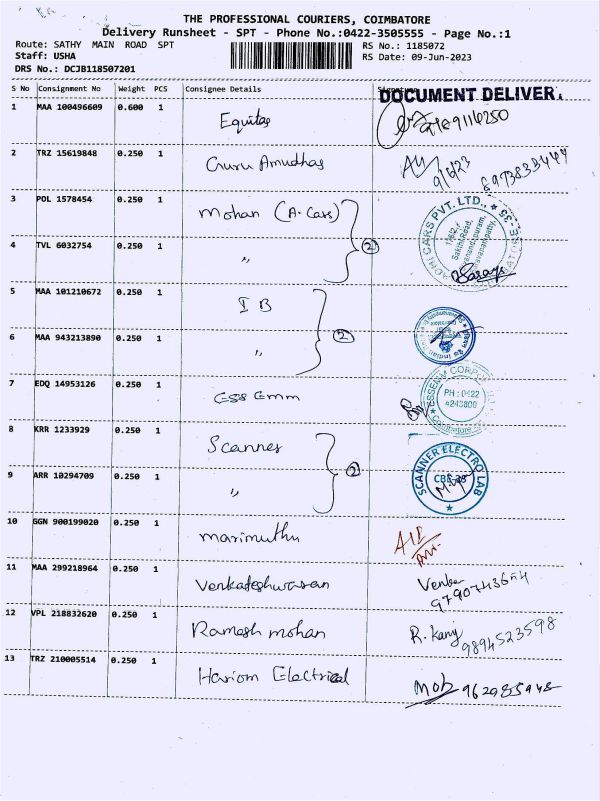 THE PROFESSIONAL COURIERS, COIMBATORE
Delivery Runsheet - SPT - Phone No.:0422-3505555 - Page No.:1
Route: SATHY MAIN ROAD SPT
RS No.: 1185072
Staff: USHA
RS Date: 09-Jun-2023
DRS No.: DCJB118507201
S No Consignment No Weight PCS Consignee Details
DOCUMENT DELIVER
1 MAA 100496609 0.600 1 Equitas
2 TRZ 15619848 0.250 1 Guru Amudhas
9/6/23
3 POL 1578454 0.250 1 Mohan (A. Cars)
CARS PVT. LTD.,
4 TVL 6032754 0.250 1 〃 2
5 MAA 101210672 0.250 1 I B
6 MAA 943213890 0.250 1 〃 2
7 EDQ 14953126 0.250 1 ESS Emm
PH : 0422
Coimbatore
8 KRR 1233929 0.250 1 Scanner
SCANNER ELECTRO LAB
9 ARR 10294709 0.250 1 〃 2
10 GGN 900199020 0.250 1 marimuthu
11 MAA 299218964 0.250 1 Venkateshwaran
12 VPL 218832620 0.250 1 Ramesh mohan
9894523598
13 TRZ 210005514 0.250 1 Hariom Electrical